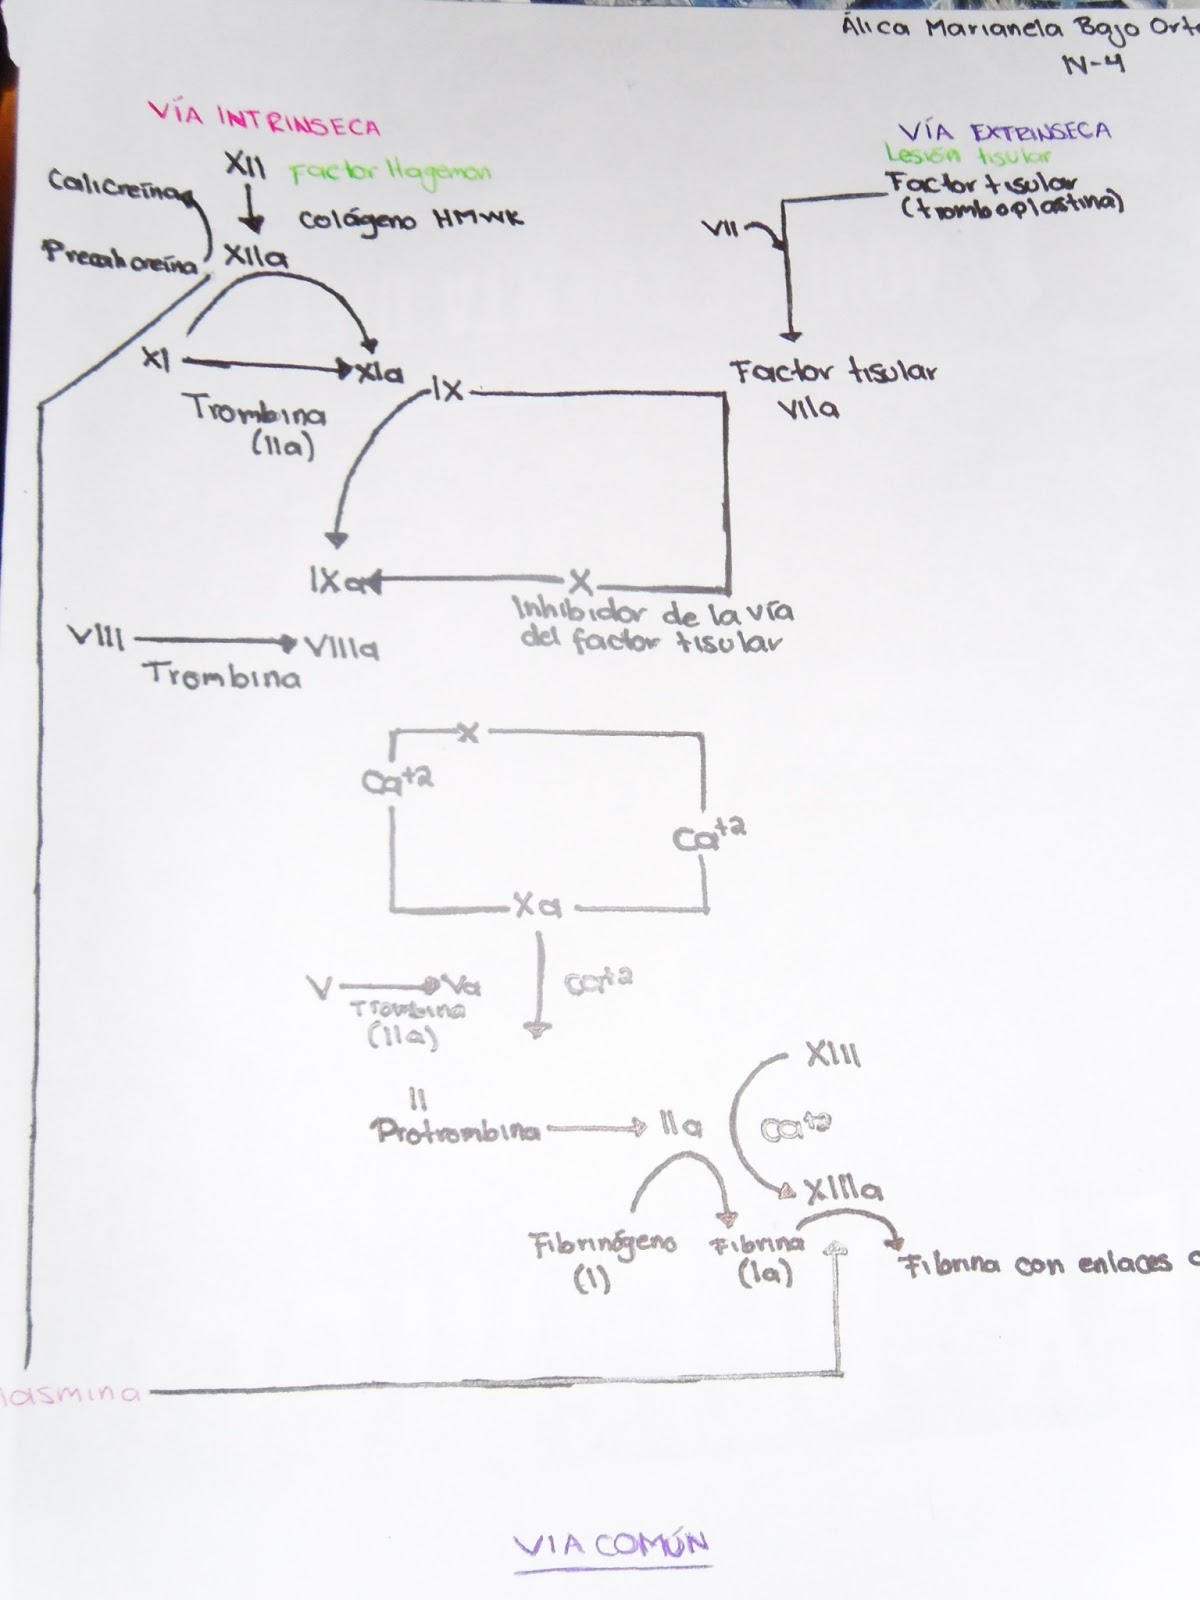 Álica Marianela Bajo
IV-4
VÍA INTRINSECA
VÍA EXTRINSECA
XII Factor Hageman
Lesión tisular
Factor tisular
(tromboplastina)
Calicreína
Colágeno HMWK
VII
XIIa
XI
XIa
IX
Factor tisular
VIIa
Trombina
(IIa)
IXa
X
Inhibidor de la vía
del factor tisular
VIII
VIIIa
Trombina
X
Ca+2
Ca+2
Xa
V
Va
Ca+2
Trombina
(IIa)
XIII
II
Protrombina
IIa
Ca+2
XIIIa
Fibrinógeno
(I)
Fibrina
(Ia)
Fibrina con enlaces
lasmina
VIA COMÚN